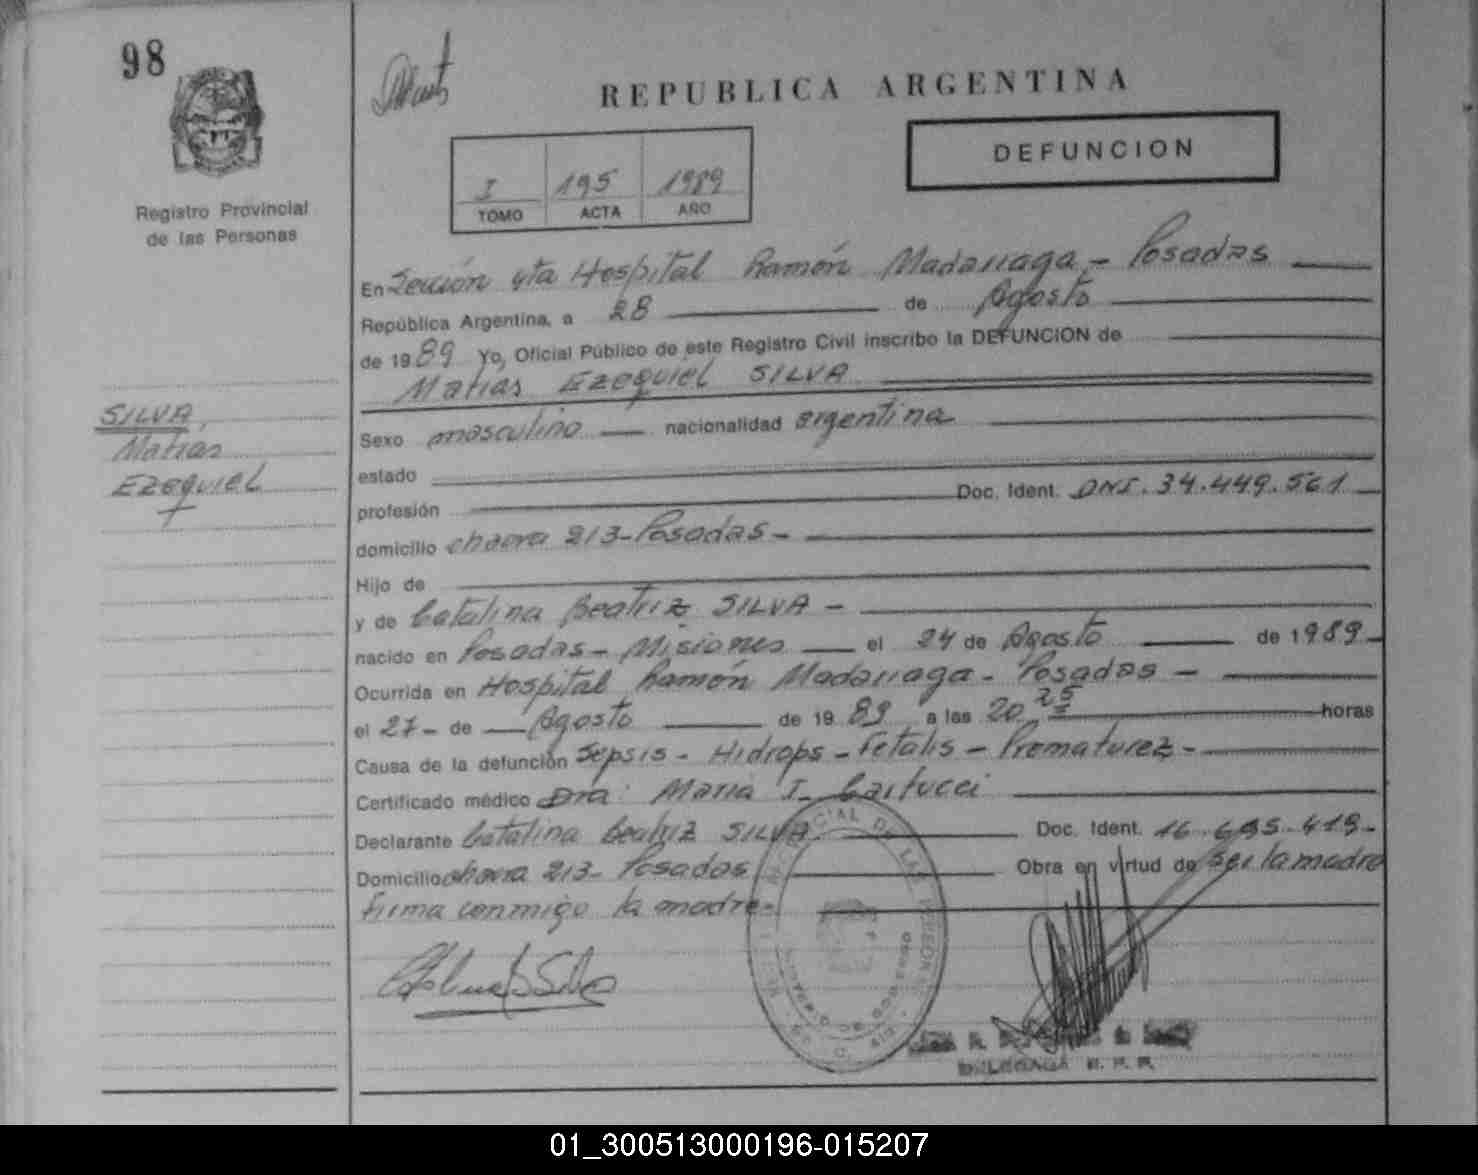 98
REPUBLICA ARGENTINA
DEFUNCION
I 195 1989
TOMO ACTA AÑO
Registro Provincial
de las Personas
En Sección 4ta Hospital Ramón Madariaga - Posadas
República Argentina, a 28 de Agosto
de 1989 Yo, Oficial Público de este Registro Civil inscribo la DEFUNCION de
Matias Ezequiel SILVA
SILVA,
Matias
Ezequiel
Sexo masculino nacionalidad argentina
estado
profesión Doc. Ident. DNI. 34.449.561
domicilio chacra 213-Posadas-
Hijo de
y de Catalina Beatriz SILVA -
nacido en Posadas - Misiones el 24 de Agosto de 1989
Ocurrida en Hospital Ramón Madariaga - Posadas -
el 27- de Agosto de 1989 a las 20 25 horas
Causa de la defunción Sepsis - Hidrops - Fetalis - Prematurez -
Certificado médico Dra: Maria I. Cartucci
Declarante Catalina Beatriz SILVA Doc. Ident. 16.695.419-
Domicilio chacra 213- Posadas Obra en virtud de ser la madre
firma conmigo la madre-
01_300513000196-015207